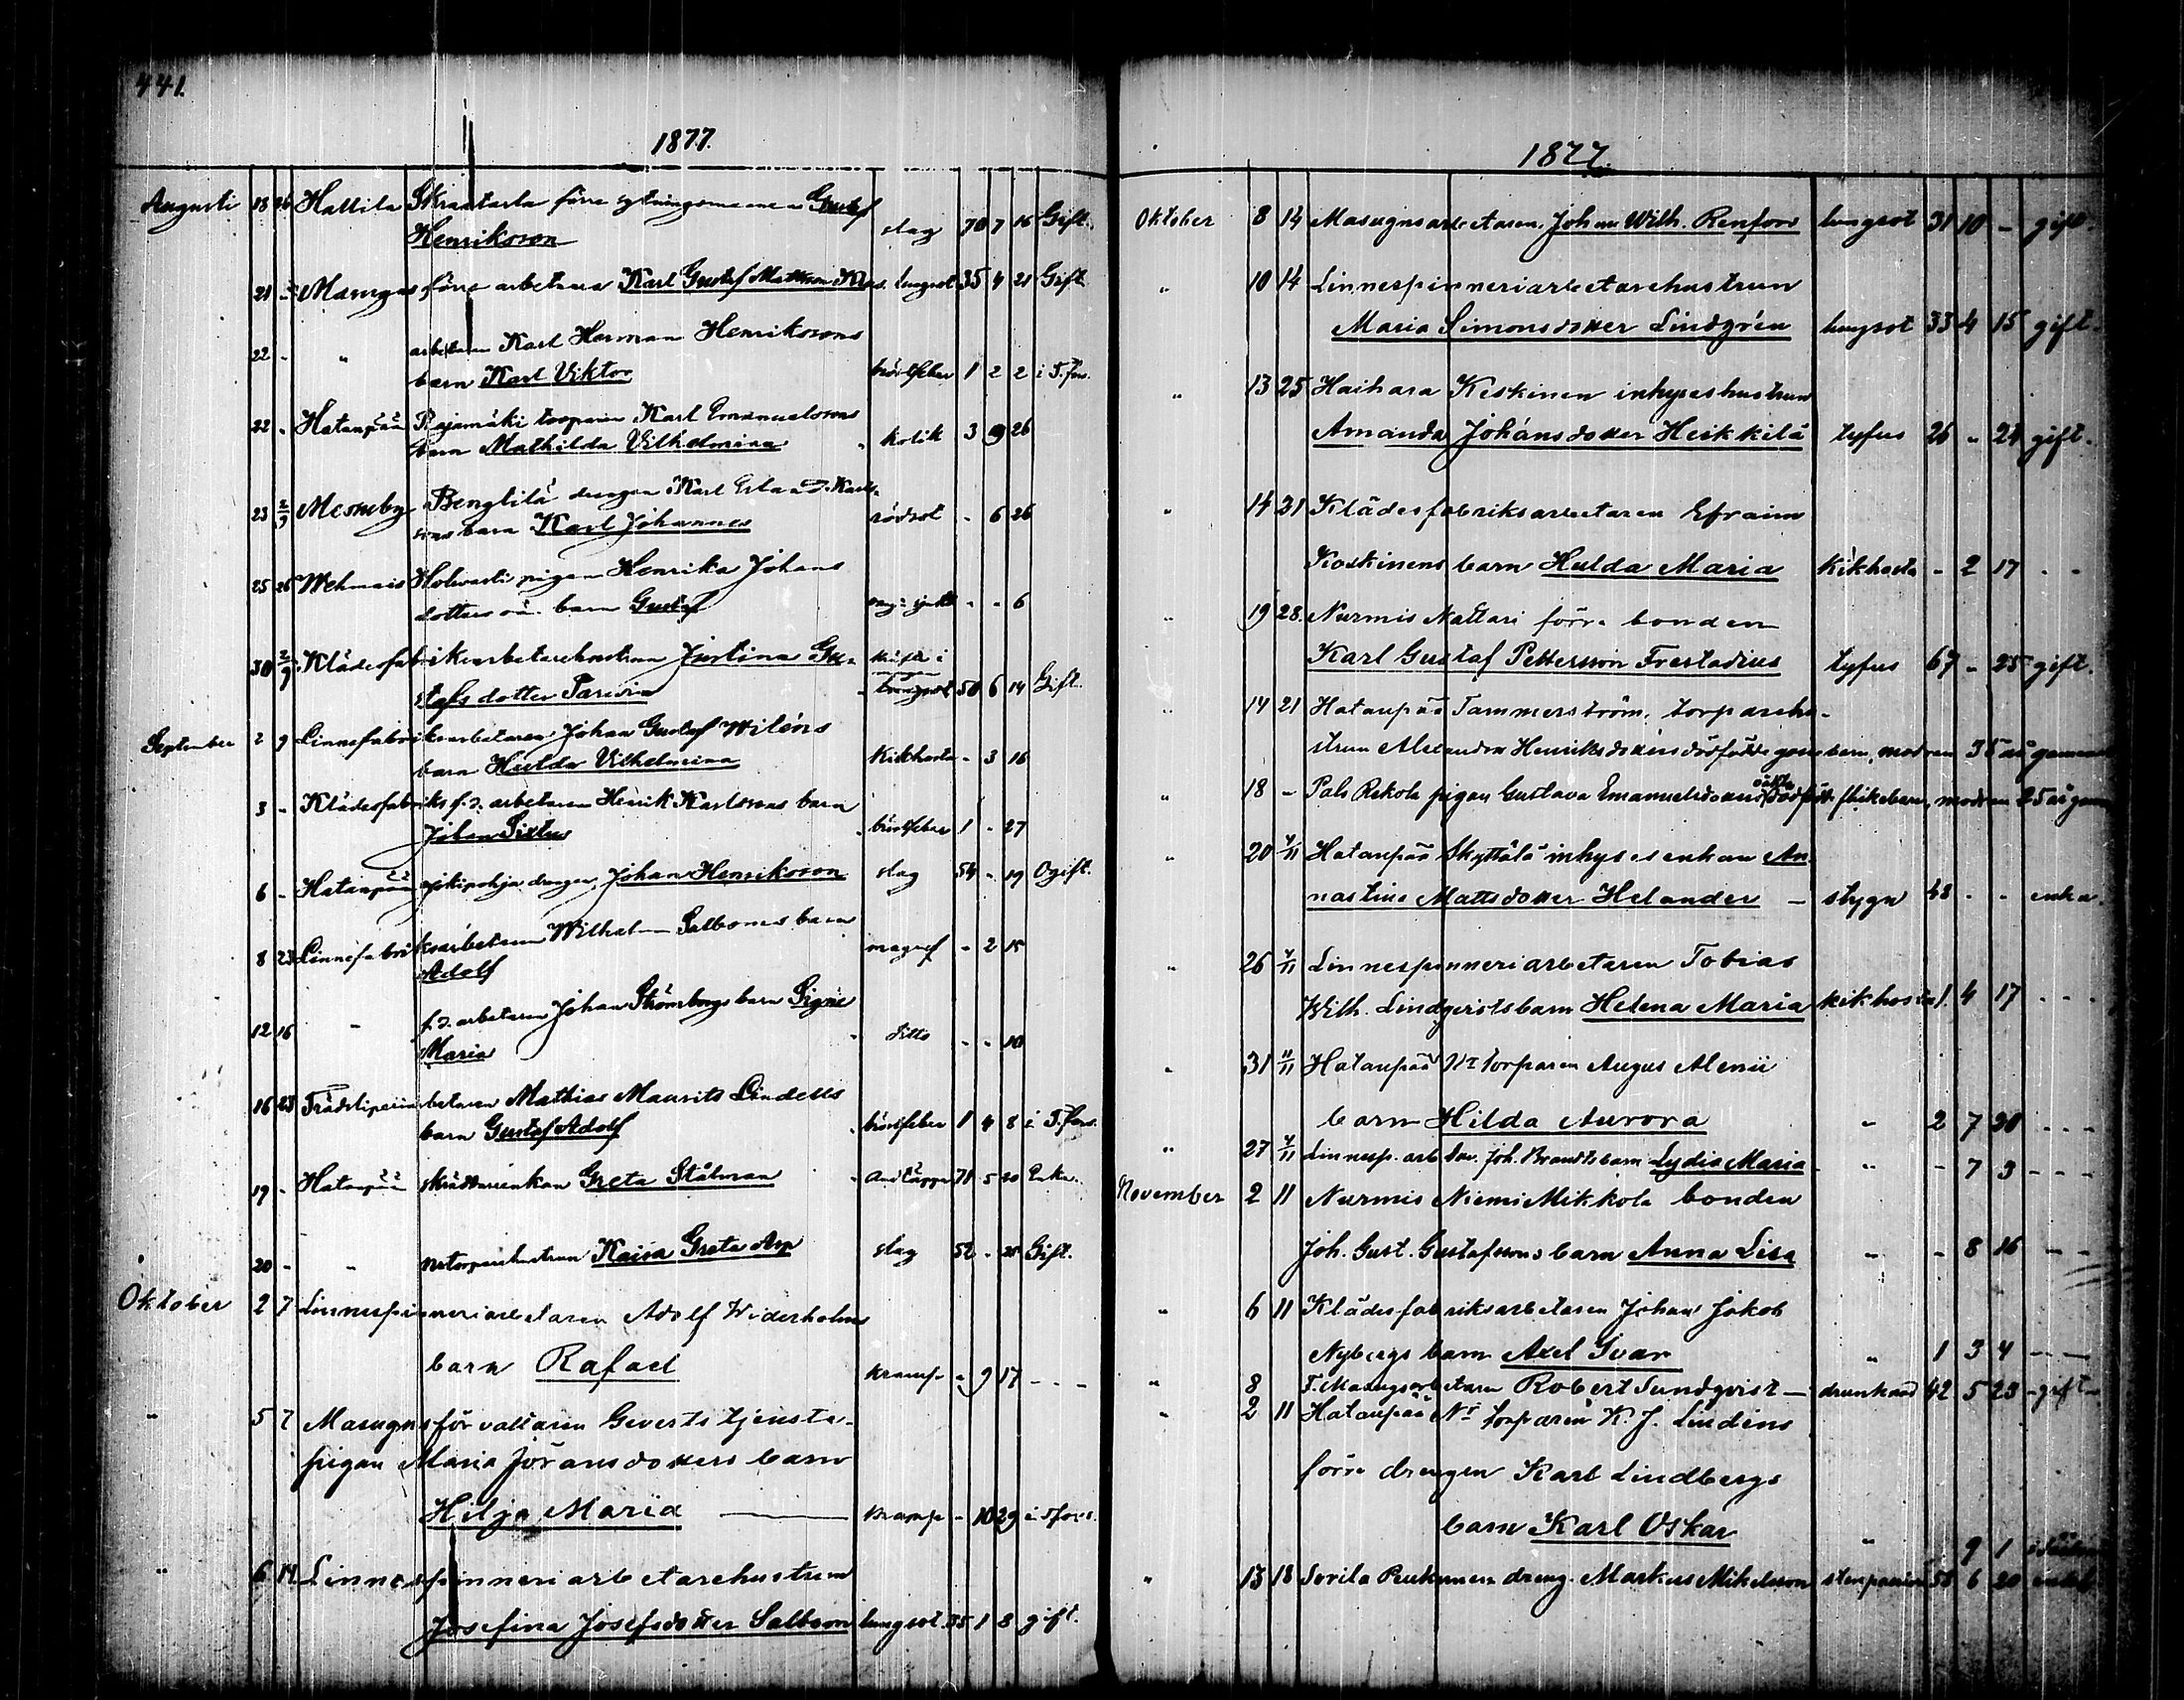 441.
1877.
Augusti 18 26 Hallila Skraatarla förre sytningsmannen Gustaf
Henriksson slag 70 7 16 Gift.
21 - Masugns förre arbetaren Karl Gustaf Mattsson lungsot 35 4 21 Gift
22 - " arbetaren Karl Herman Henrikssons
barn Karl Viktor bröstfeber 1 2 2 i T.fors.
22 - Hatanpää Rajamäki torparen Karl Emanuelssons
barn Mathilda Vilhelmina kolik 3 9 26
23 2/9 Messuby Bengtilä drengen Karl Karls-
sons barn Karl Johannes rödsot - 6 26
25 26 Wehmais Holvasti pigan Henrika Johans
dotters oä. barn Gustaf - - 6
30 2/9 Klädesfabriksarbetarehustrun Justina Gu-
stafsdotter kräfta i magen 50 6 14 Gift.
September 2 9 Linnefabriksarbetaren Johan Gustaf Wiléns
barn Hulda Vilhelmina Kikhosta - 3 16
3 - Klädesfabriks f.d. arbetaren Henrik Karlssons barn
Johan Sixtus bröstfeber 1 - 27
6 - Hatanpää drengen Johan Henriksson slag 54 - 19 Ogift.
8 23 Linnefabriksarbetaren Wilhelm Salboms barn
Adolf magref - 2 15
12 16 - f.d. arbetaren Johan Strömbergs barn Signe
Maria ditto - - 10
16 23 Trädsliperiarbetaren Mathias Maurits Lindells
barn Gustaf Adolf bröstfeber 1 4 8 i T.fors.
19 - Hatanpää skräddarenkan Greta Stålman Andtäppa 71 5 20 Enka.
20 - - Kaisa Greta Asp slag 52 - 25 Gift.
Oktober 2 7 Linnespinneriarbetaren Adolf Widerholms
barn Rafael kramp - 9 17 - - -
" 5 7 Masugnsförvaltaren Geverts tjenste-
pigan Maria Jöransdotters barn
Hilja Maria kramp - 10 29 i Tfors.
" 6 14 Linnespinneriarbetarehustrun
Josefina Josefsdotter Salbom lungsot 35 1 8 gift.
1877.
Oktober 8 14 Masugnsarbetaren Johan Wilh. Renfors lungsot 31 10 - gift.
" 10 14 Linnespinneriarbetarehustrun
Maria Simonsdotter Lindgrén lungsot 33 4 15 gift.
" 13 25 Haihara Keskinen inhyseshustrun
Amanda Johansdotter Heikkilä tyfus 26 " 24 gift.
" 14 21 Klädesfabriksarbetaren Efraim
Koskinens barn Hulda Maria Kikhosta - 2 17 - -
" 19 28. Nurmis Nattari förre bonden
Karl Gustaf Pettersson Frestadius tyfus 67 - 25 gift.
" 14 21 Hatanpää Tammerström, torparehu-
strun Alexandra Henriksdotters dödfödde gossebarn, modren 35 år gammal
" 18 - Pals Rekola pigan Gustava Emanuelsdotters oäkta dödfödt flickebarn, modren 25 år gammal
" 20 4/11 Hatanpää Skyttälä inhysesenkan An-
nastina Mattsdotter Helander - stygn 48 - - enka.
" 26 4/11 Linnespinneriarbetaren Tobias
Wilh. Lindqvists barn Helena Maria kikhosta 1 4 17 - - -
" 31 11/11 Hatanpää Nr torparen Augus Aleni
barn Hilda Aurora " 2 7 20 - - -
" 27 4/11 Linnesp. arbetar. Joh. Brandts barn Lydia Maria " - 7 3 - - -
November 2 11 Nurmis Niemi Mikkola bonden
Joh. Gust. Gustafssons barn Anna Lisa " - 8 16 - -
" 6 11 Klädesfabriksarbetaren Johan Jakob
Nybergs barn Axel Ivar " 1 3 4 - -
" 8 F. Masugnsarbetaren Robert Sundqvist - drunknad 42 5 23 - gift -
" 2 11 Hatanpää Nr torparen K. J. Lindéns
förre drengen Karl Lindbergs
barn Karl Oskar " 9 1
" 13 18 Sorila Penkanen dreng. Markus Mikelsson 6 20